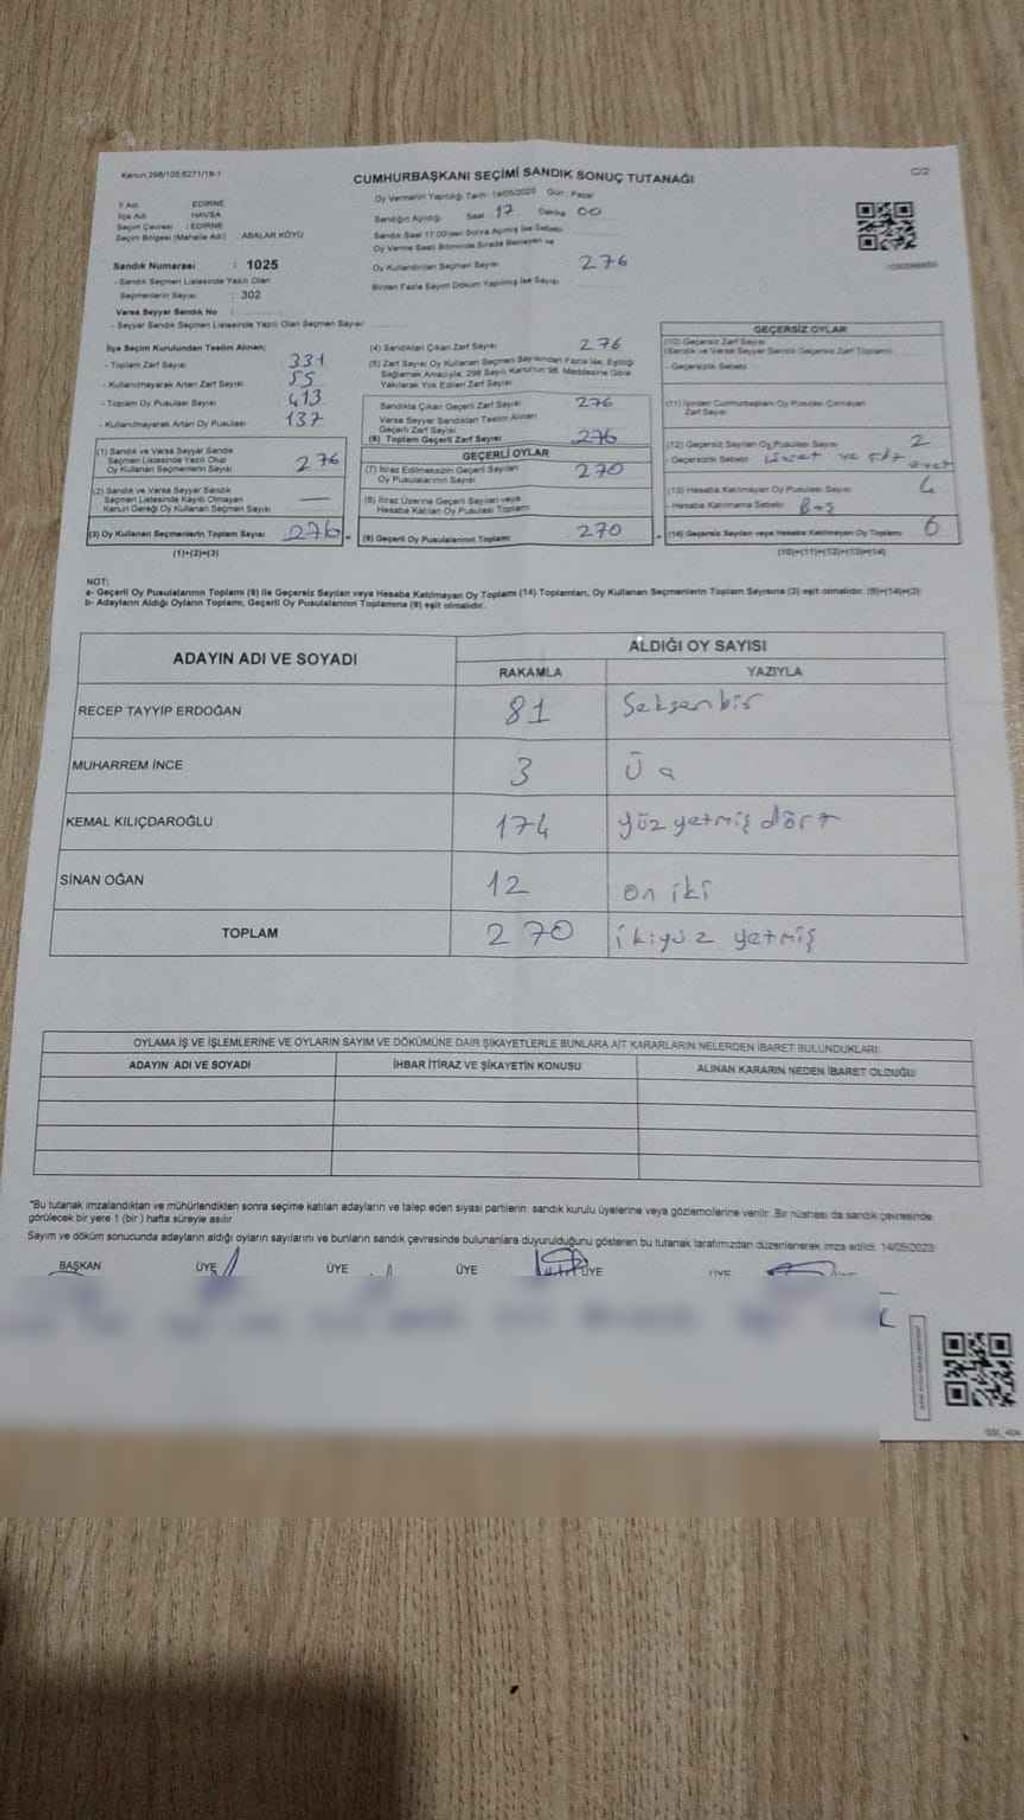 Kanun:298/105;6271/19-1
CUMHURBAŞKANI SEÇİMİ SANDIK SONUÇ TUTANAĞI
C/2
İl Adı EDİRNE
İlçe Adı HAVSA
Seçim Çevresi : EDİRNE
Seçim Bölgesi (Mahalle Adı) ABALAR KÖYÜ
Oy Vermenin Yapıldığı Tarih : 14/05/2023 Gün : Pazar
Sandığın Açıldığı Saat 17 Dakika 00
Sandık Saat 17:00'den Sonra Açılmış İse Sebebi
Oy Verme Saati Bitiminde Sırada Bekleyen ve
Oy Kullandırılan Seçmen Sayısı 276
Birden Fazla Sayım Döküm Yapılmış İse Sayısı
Sandık Numarası : 1025
- Sandık Seçmen Listesinde Yazılı Olan
Seçmenlerin Sayısı : 302
Varsa Seyyar Sandık No :
- Seyyar Sandık Seçmen Listesinde Yazılı Olan Seçmen Sayısı
İlçe Seçim Kurulundan Teslim Alınan;
- Toplam Zarf Sayısı 331
- Kullanılmayarak Artan Zarf Sayısı 55
- Toplam Oy Pusulası Sayısı 413
- Kullanılmayarak Artan Oy Pusulası 137
(1) Sandık ve Varsa Seyyar Sandık
Seçmen Listesinde Yazılı Olup
Oy Kullanan Seçmenlerin Sayısı 276
(2) Sandık ve Varsa Seyyar Sandık
Seçmen Listesinde Kayıtlı Olmayan
Kanun Gereği Oy Kullanan Seçmen Sayısı —
(3) Oy Kullanan Seçmenlerin Toplam Sayısı 276
(1)+(2)=(3)
(4) Sandıktan Çıkan Zarf Sayısı 276
(5) Zarf Sayısı Oy Kullanan Seçmen Sayısından Fazla İse, Eşitliği
Sağlamak Amacıyla, 298 Sayılı Kanun'un 98. Maddesine Göre
Yakılarak Yok Edilen Zarf Sayısı
Sandıkta Çıkan Geçerli Zarf Sayısı 276
Varsa Seyyar Sandıktan Teslim Alınan
Geçerli Zarf Sayısı
(6) Toplam Geçerli Zarf Sayısı 276
GEÇERLİ OYLAR
(7) İtiraz Edilmeksizin Geçerli Sayılan
Oy Pusulalarının Sayısı 270
(8) İtiraz Üzerine Geçerli Sayılan veya
Hesaba Katılan Oy Pusulası Toplamı
(9) Geçerli Oy Pusulalarının Toplamı 270
GEÇERSİZ OYLAR
(10) Geçersiz Zarf Sayısı
(Sandık ve Varsa Seyyar Sandık Geçersiz Zarf Toplamı)
- Geçersizlik Sebebi
(11) İçinden Cumhurbaşkanı Oy Pusulası Çıkmayan
Zarf Sayısı
(12) Geçersiz Sayılan Oy Pusulası Sayısı 2
- Geçersizlik Sebebi ve
(13) Hesaba Katılmayan Oy Pusulası Sayısı 4
- Hesaba Katılmama Sebebi Boş
(14) Geçersiz Sayılan veya Hesaba Katılmayan Oy Toplamı 6
(10)+(11)+(12)+(13)=(14)
NOT:
a- Geçerli Oy Pusulalarının Toplamı (9) ile Geçersiz Sayılan veya Hesaba Katılmayan Oy Toplamı (14) Toplamları, Oy Kullanan Seçmenlerin Toplam Sayısına (3) eşit olmalıdır. (9)+(14)=(3)
b- Adayların Aldığı Oyların Toplamı, Geçerli Oy Pusulalarının Toplamına (9) eşit olmalıdır.
ADAYIN ADI VE SOYADI
ALDIĞI OY SAYISI
RAKAMLA YAZIYLA
RECEP TAYYİP ERDOĞAN 81 Seksenbir
MUHARREM İNCE 3 Üç
KEMAL KILIÇDAROĞLU 174 yüz yetmiş dört
SİNAN OĞAN 12 on iki
TOPLAM 270 ikiyüz yetmiş
OYLAMA İŞ VE İŞLEMLERİNE VE OYLARIN SAYIM VE DÖKÜMÜNE DAİR ŞİKAYETLERLE BUNLARA AİT KARARLARIN NELERDEN İBARET BULUNDUKLARI
ADAYIN ADI VE SOYADI İHBAR İTİRAZ VE ŞİKAYETİN KONUSU ALINAN KARARIN NEDEN İBARET OLDUĞU
"Bu tutanak imzalandıktan ve mühürlendikten sonra seçime katılan adayların ve talep eden siyasi partilerin; sandık kurulu üyelerine veya gözlemcilerine verilir. Bir nüshası da sandık çevresinde
görülecek bir yere 1 (bir) hafta süreyle asılır.
Sayım ve döküm sonucunda adayların aldığı oyların sayılarını ve bunların sandık çevresinde bulunanlara duyurulduğunu gösteren bu tutanak tarafımızdan düzenlenerek imza edildi. 14/05/2023
BAŞKAN ÜYE ÜYE ÜYE ÜYE ÜYE ÜYE